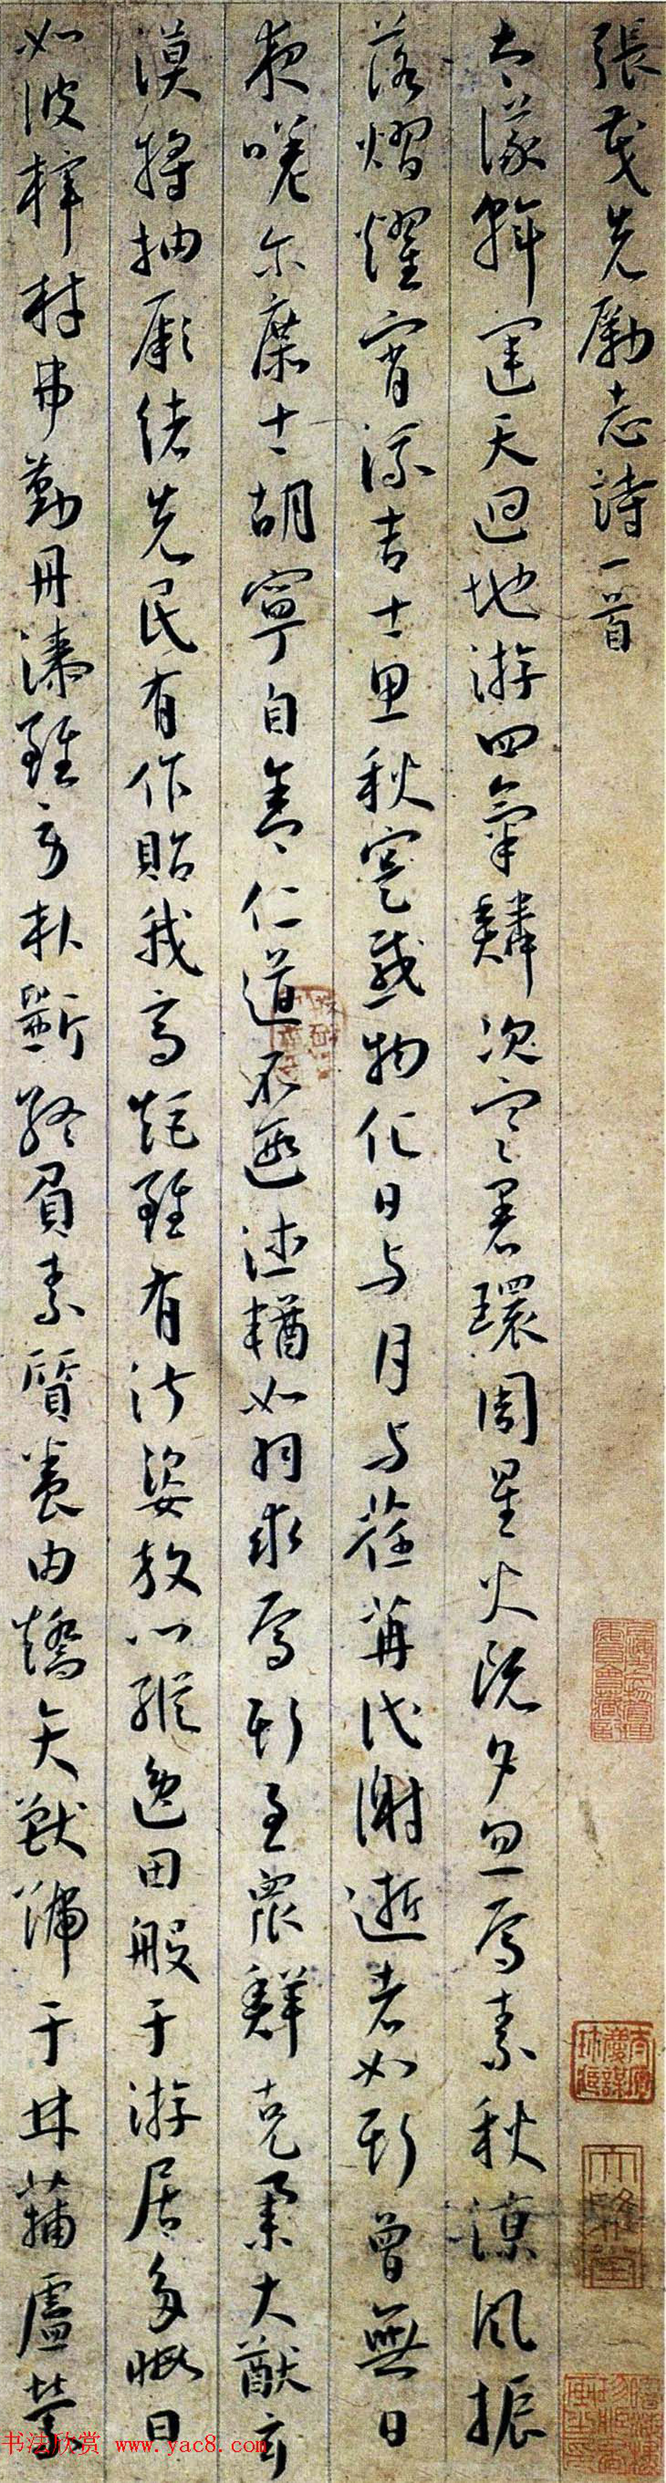 張茂先勵志詩一首
大儀斡運天迴地游四氣鱗次寒暑環周星火既夕忽焉素秋涼風振
落熠燿宵流吉士思秋寔感物化日与月与荏苒代謝逝者如斯曾無日
夜嗟尒庶士胡寧自舍仁道不遐德輶如羽求焉斯至眾鮮克舉大猷玄
漠將抽厥緒先民有作貽我高矩雖有淑姿放心縱逸田般于游居多暇日
如彼梓材弗勤丹漆雖勞朴斲終負素質養由矯矢獸號于林蒲盧縈
书法欣赏 www.yac8.com